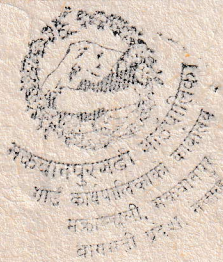 मकवानपुरगढी गाउँपालिका
गाउँ कार्यपालिकाको कार्यालय
मकवानपुरगढी, मकवानपुर
बागमती प्रदेश, नेपाल